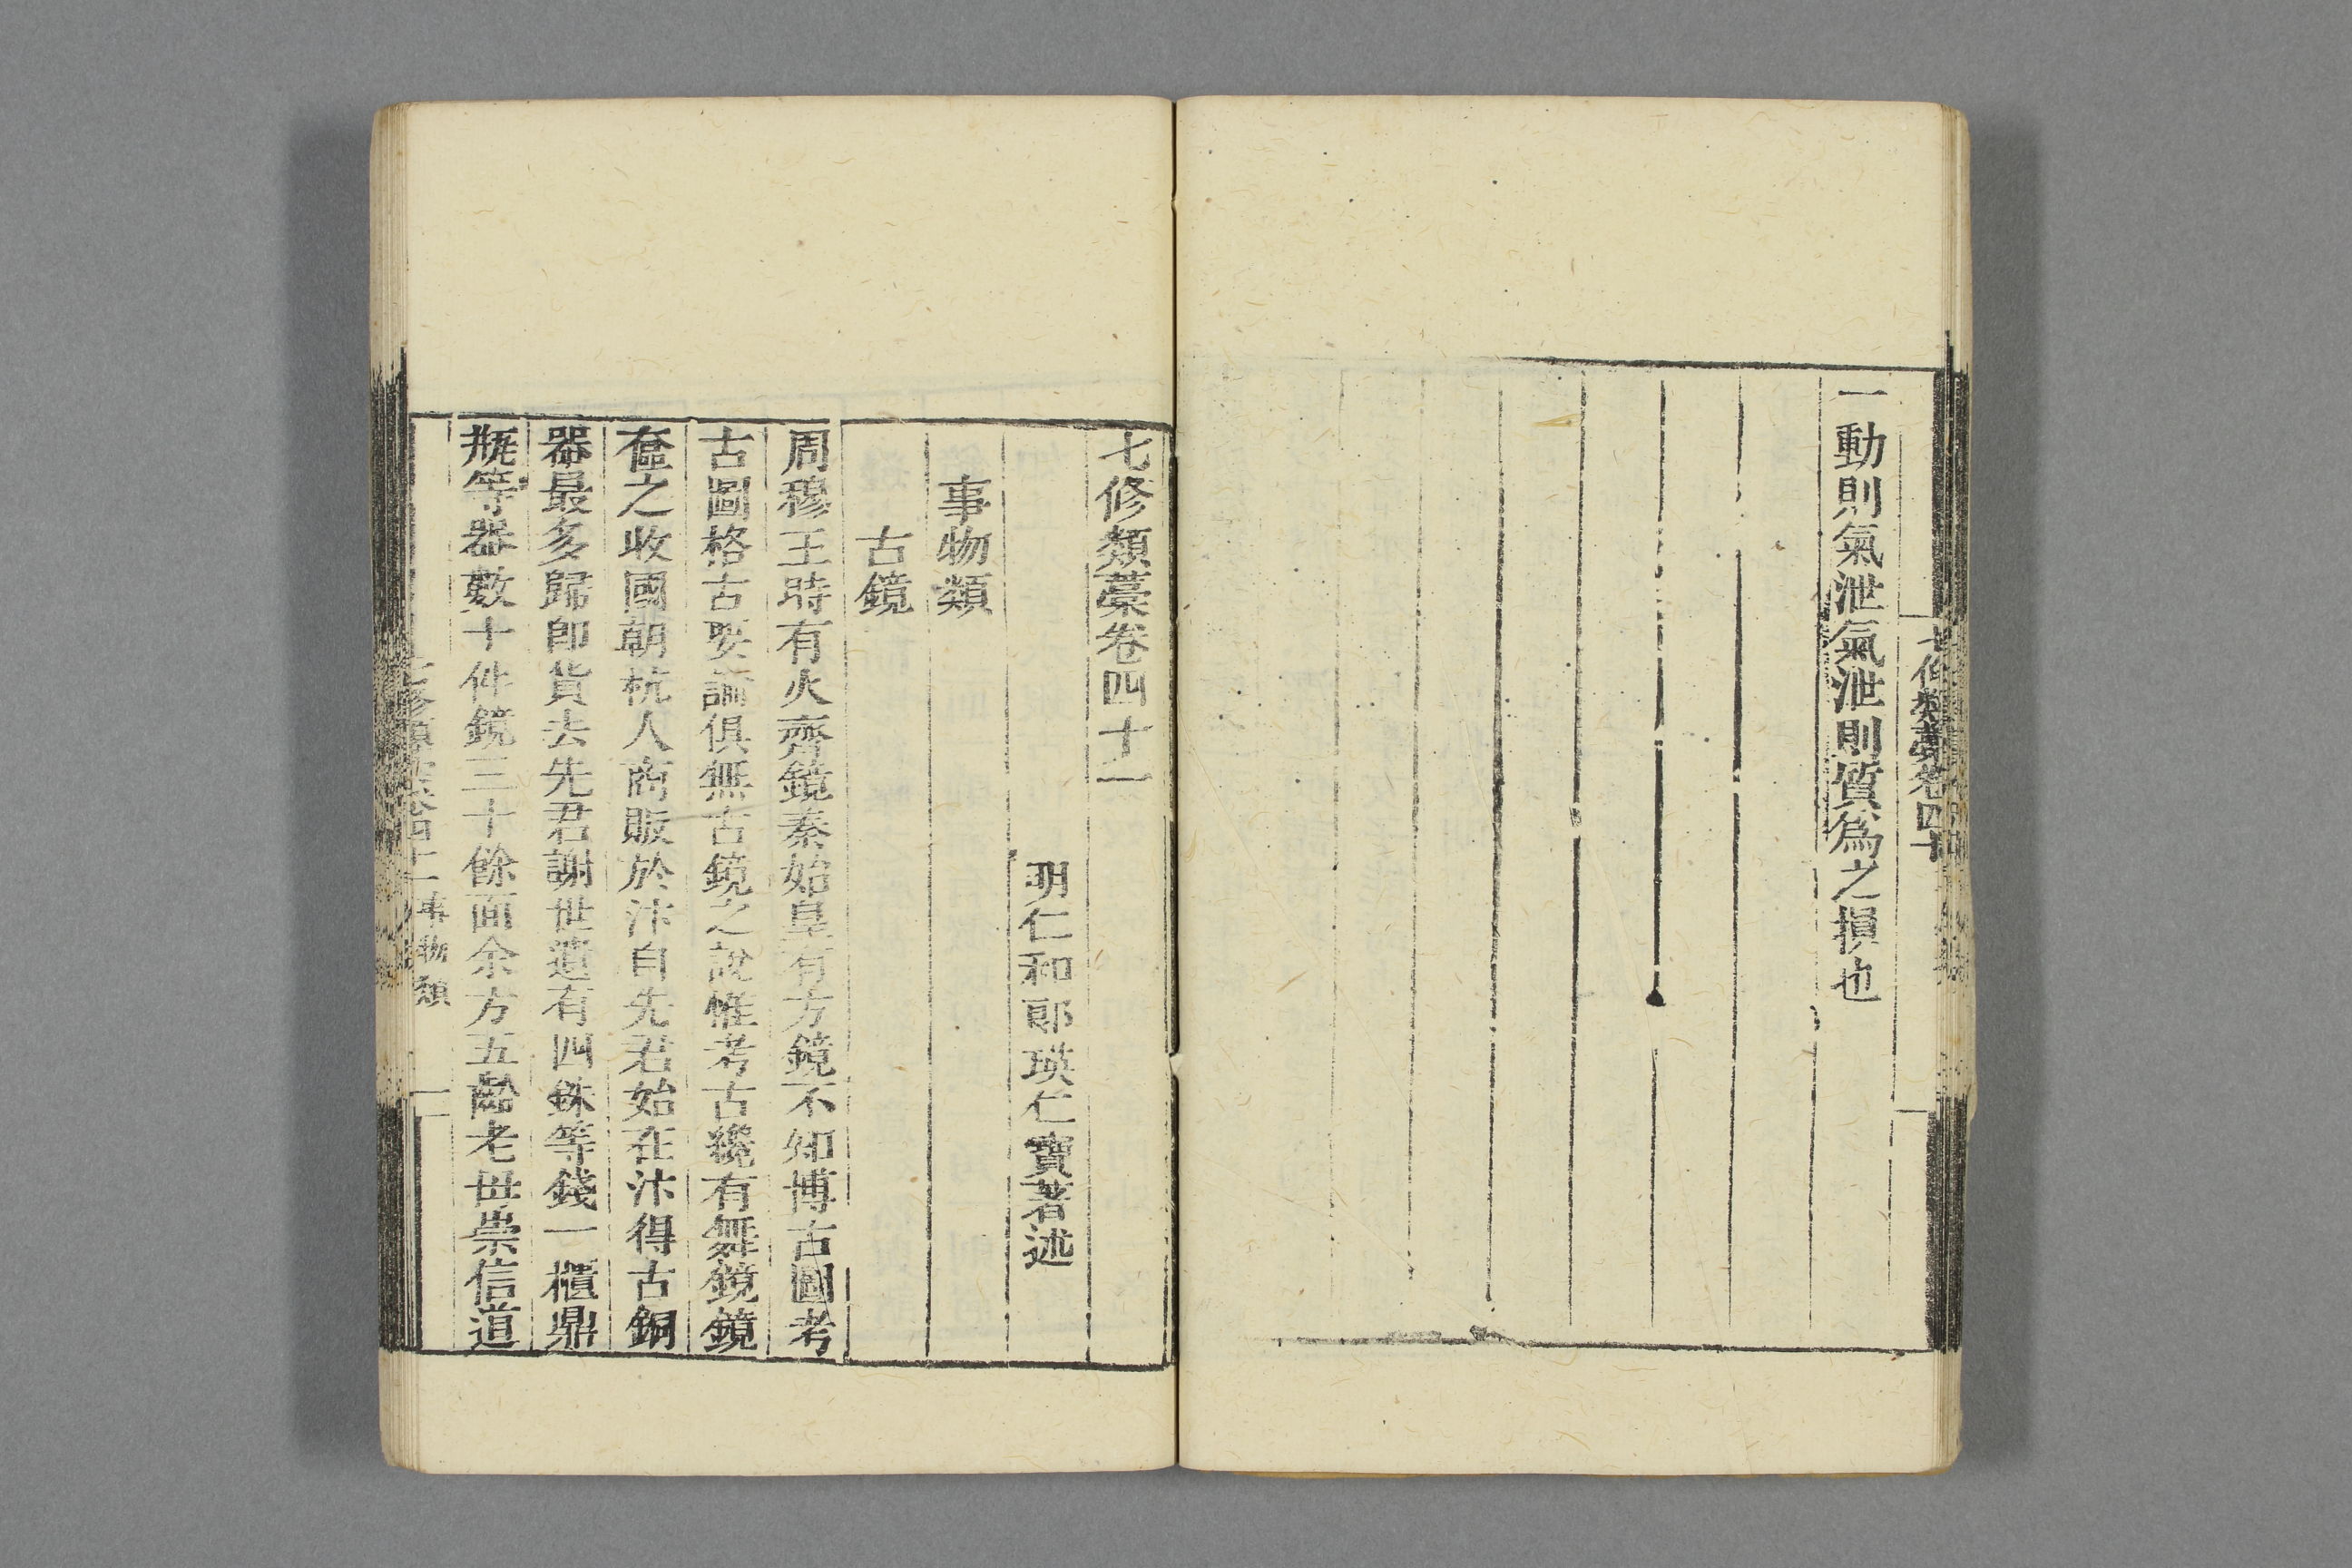 一動則氣泄氣泄則質爲之損也
七修類藁卷四十
七修類藁卷四十一
明仁和郎瑛仁寶著述
事物類
古鏡
周穆王時有火齊鏡秦始皇有方鏡不知博古圖考
古圖格古要論俱無古鏡之說惟考古纔有舞鏡鏡
奩之收國朝杭人商販於汴自先君始在汴得古銅
器最多歸卽貨去先君謝世遺有四銖等錢一櫃鼎
甁等器數十件鏡三十餘面余方五齡老母崇信道
七修類藁卷四十一 事物類 一